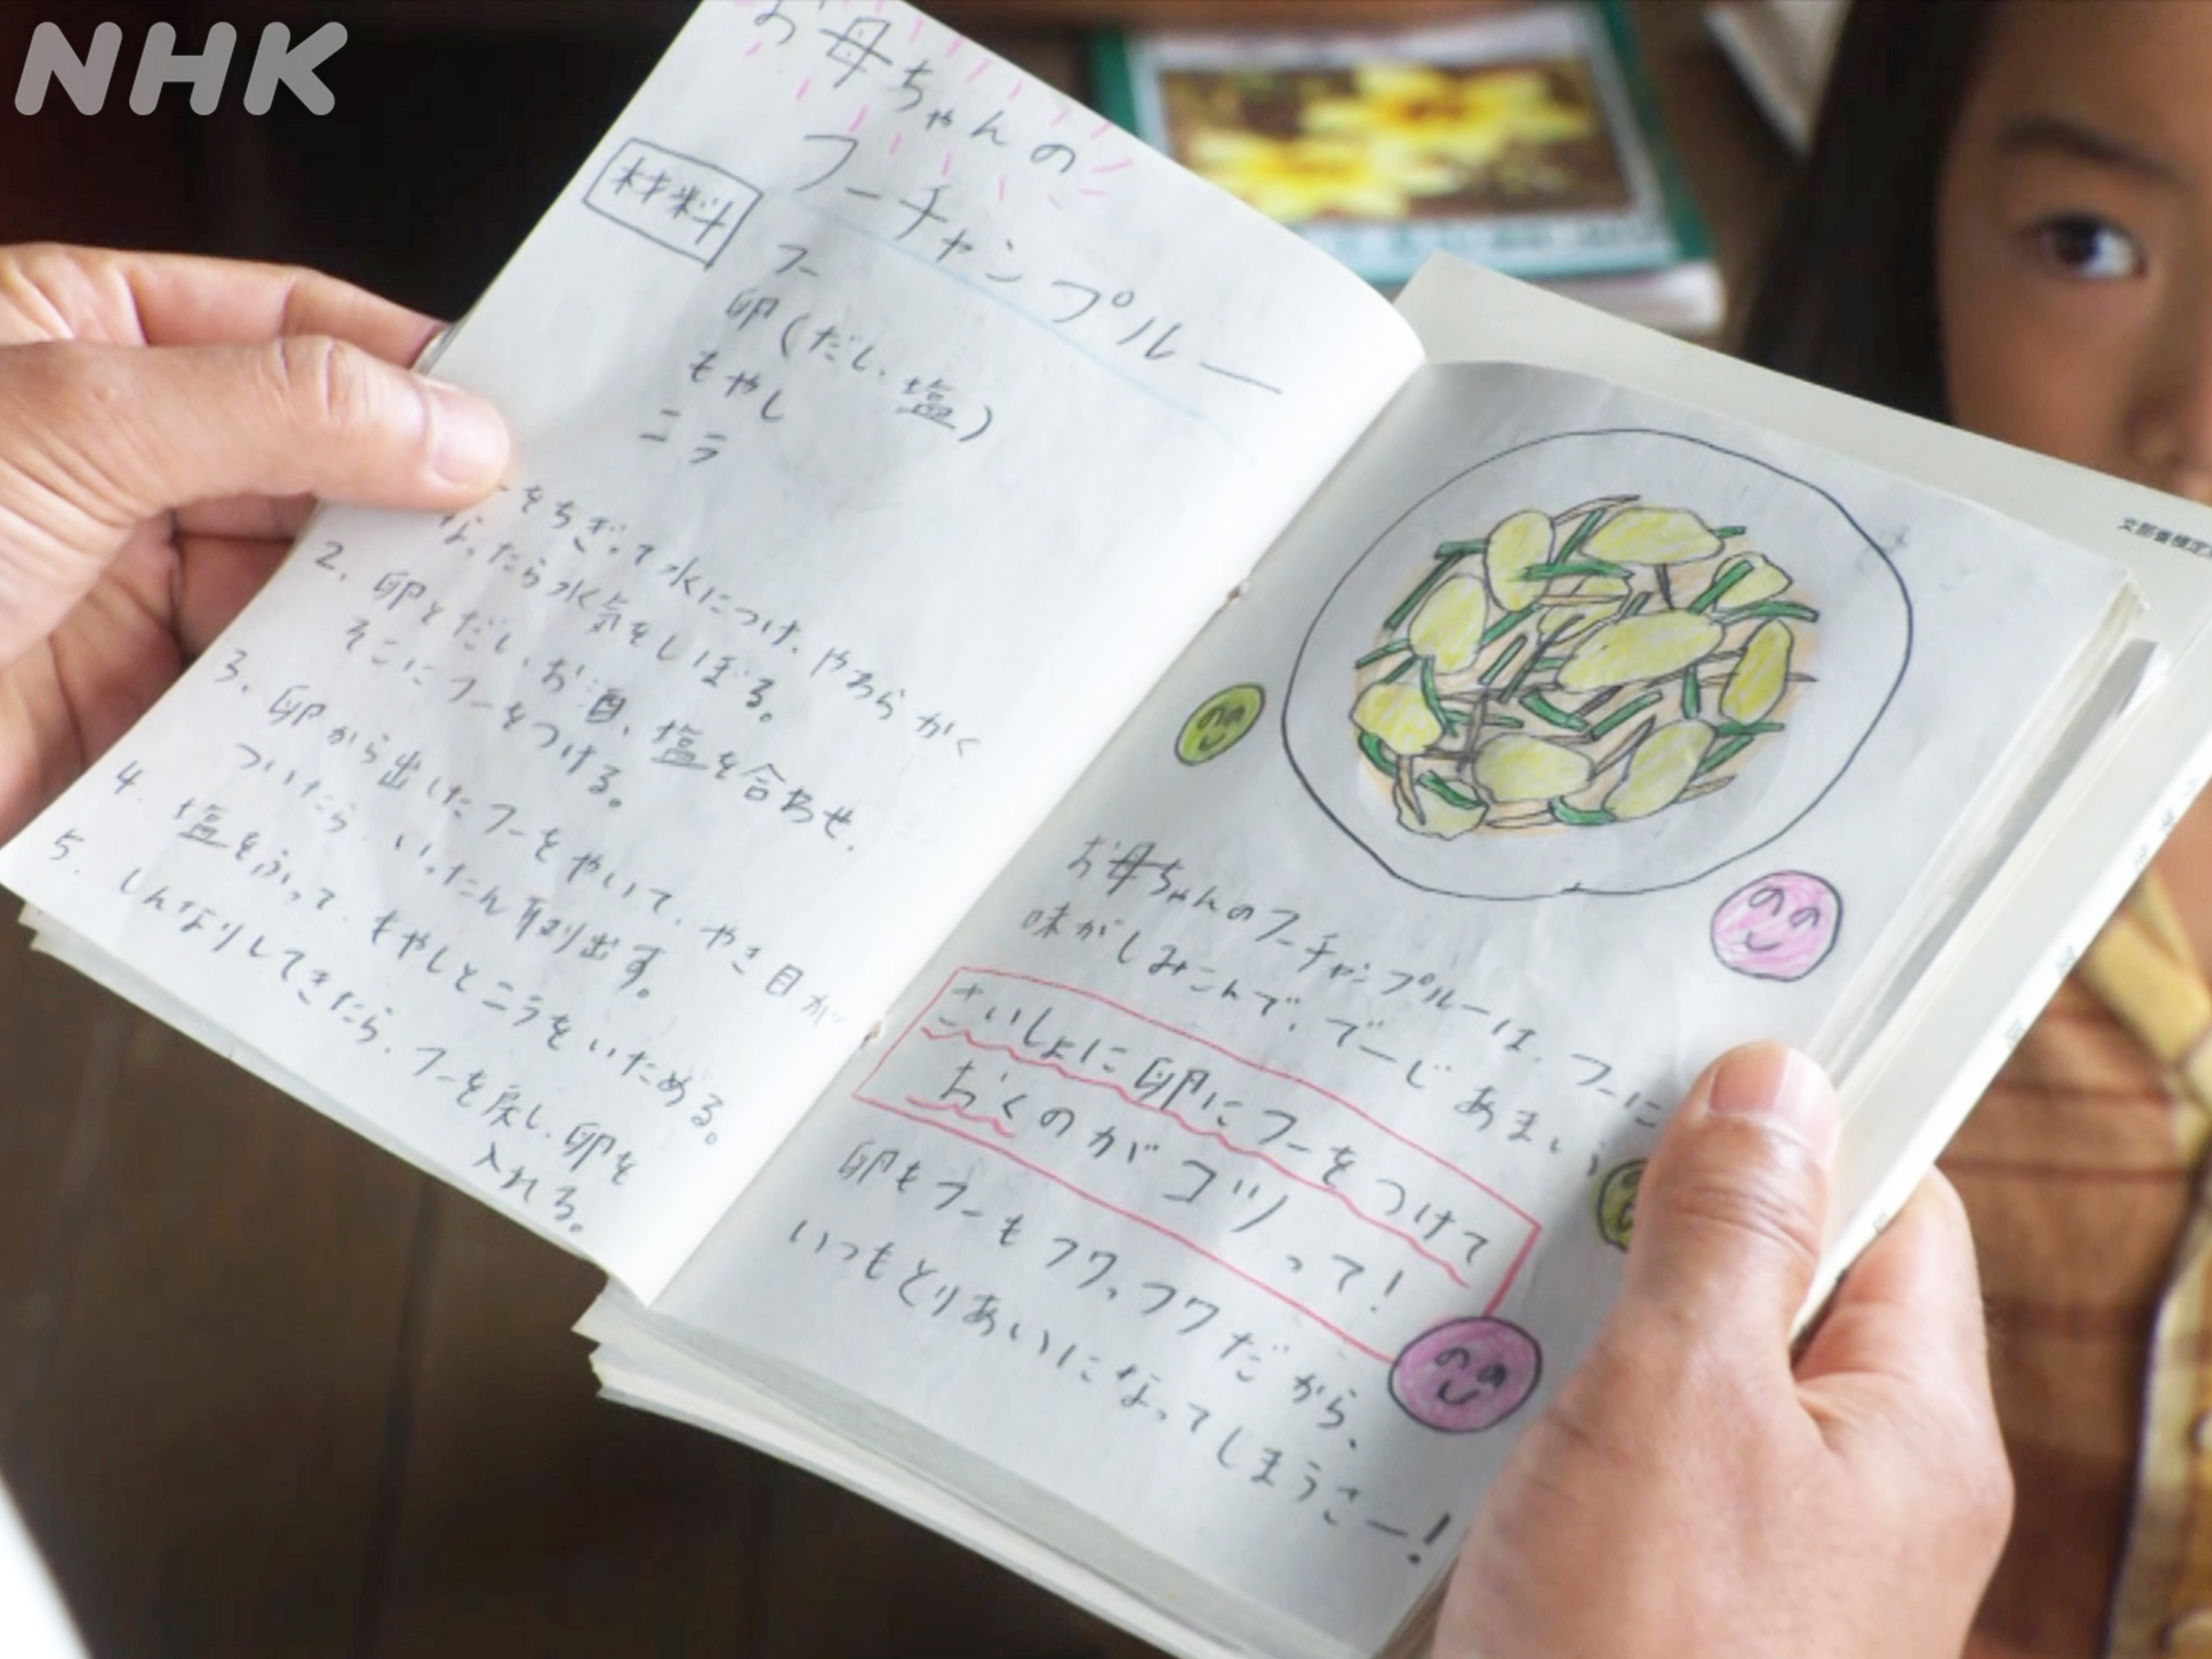 NHK
お母ちゃんの
フーチャンプルー
材料
フー
卵(だし、塩)
もやし
ニラ
ーをちぎって水につけ、やわらかく
なったら水気をしぼる。
2. 卵とだし、お酒、塩を合わせ、
そこにフーをつける。
3. 卵から出したフーをやいて、やき目が
ついたら、いったん取り出す。
4. 塩をふって、もやしとニラをいためる。
5. しんなりしてきたら、フーを戻し、卵を
入れる。
お母ちゃんのフーチャンプルーは、フーに
味がしみこんで、でーじ あまい
さいしょに卵にフーをつけて
おくのがコツって!
卵もフーもフワッフワだから、
いつもとりあいになってしまうさー!